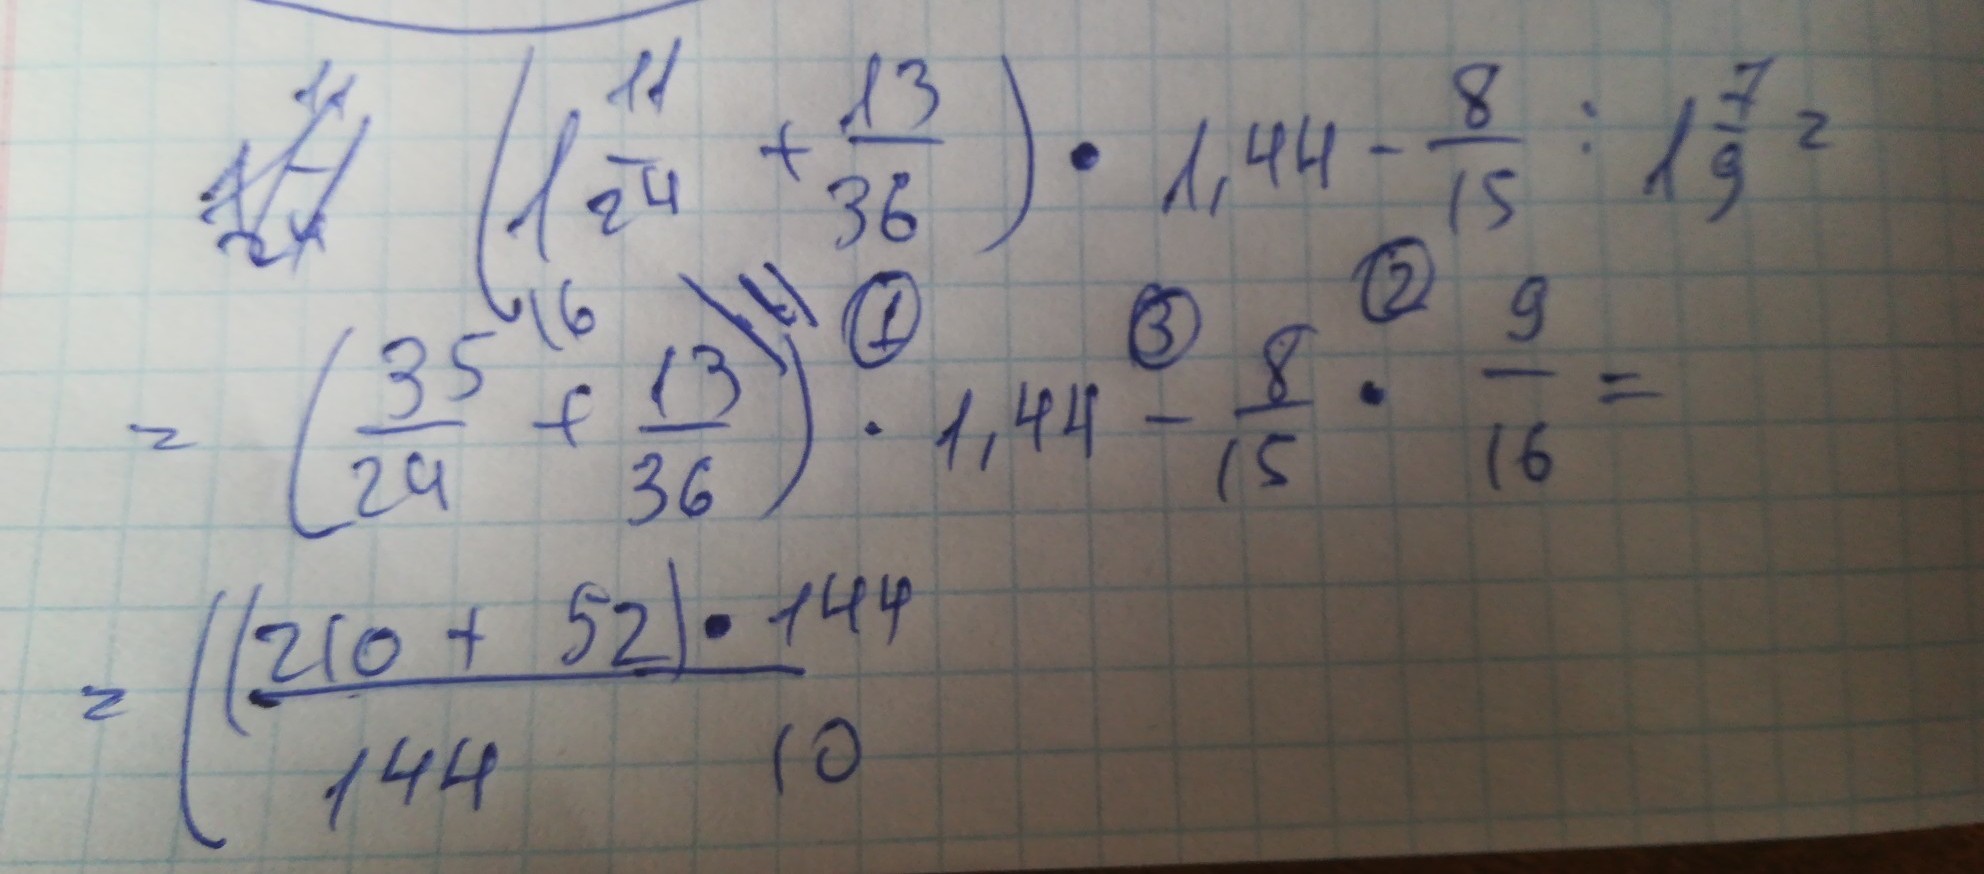 (1 11/24 + 13/36) • 1,44 - 8/15 : 1 7/9 =
= (35/24 + 13/36) · 1,44 - 8/15 · 9/16 =
16 ① ③ ②
= ((210 + 52) • 144
144 10